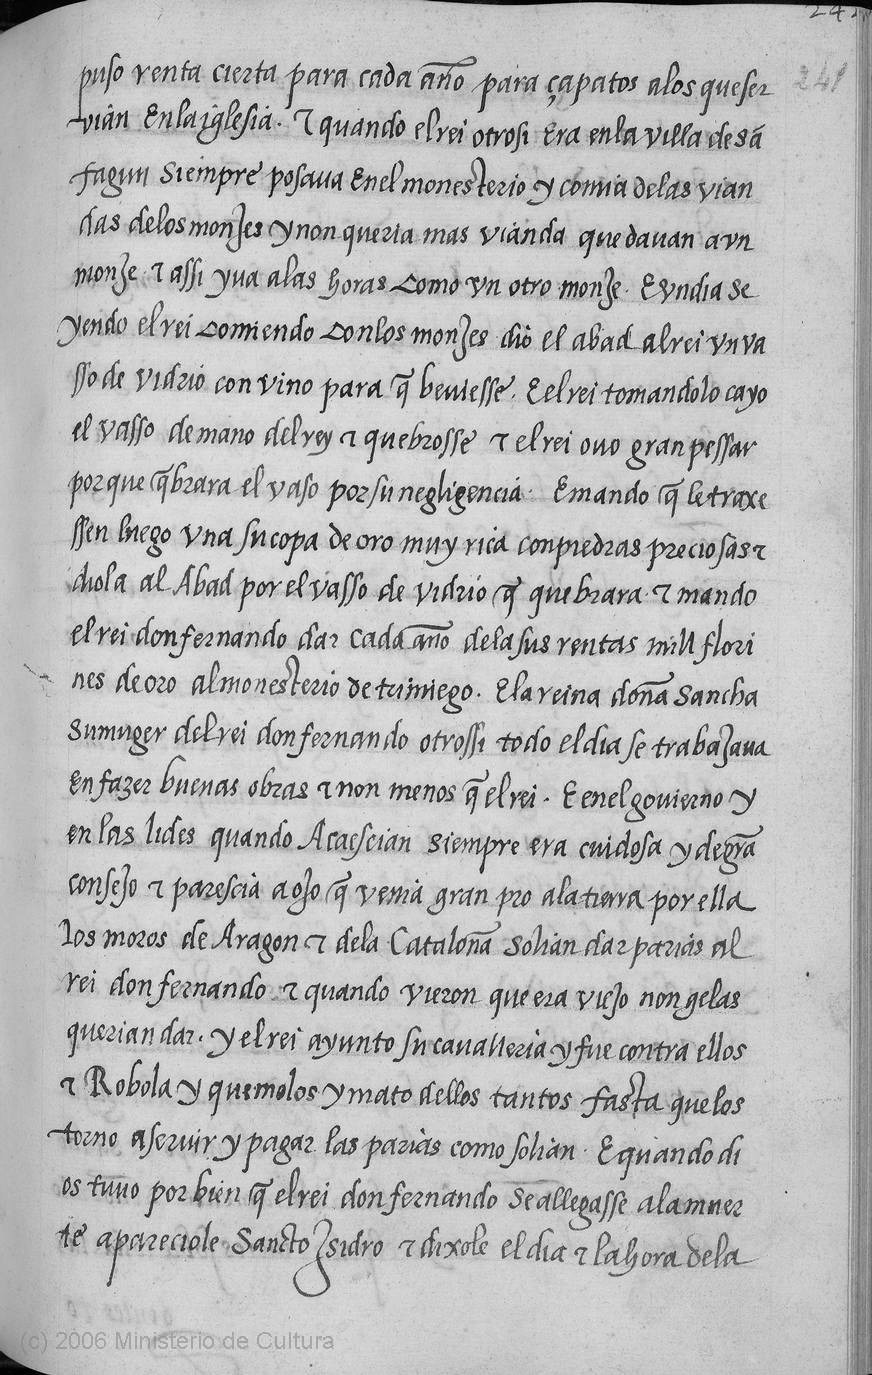 241
puso renta cierta para cada año para çapatos alos que ser
vian Enla iglesia. τ quando el rei otrosi Era enla villa de sã
fagun siempre posaua Enel monesterio y comia delas vian
das delos monjes y non queria mas vianda que dauan a vn
monje τ assi yua alas horas como vn otro monje. E vn dia se
yendo el rei comiendo con los monjes dio el abad al rei vn va
sso de vidrio con vino para q̃ beuiesse. E el rei tomandolo cayo
el vasso de mano del rey τ quebrosse τ el rei ouo gran pessar
por que q̃brara el vaso por su negligencia. E mando q̃ le traxe
ssen luego vna su copa de oro muy rica con piedras preciosas τ
diola al Abad por el vasso de vidrio q̃ quebrara τ mando
el rei don fernando dar cada año de la sus rentas mill flori
nes de oro al monesterio de trimiego. E la reina doña Sancha
su muger del rei don fernando otrossi todo el dia se trabajaua
en fazer buenas obras τ non menos q̃ el rei. E enel gouierno y
en las lides quando Acaescian siempre era cuidosa y de grã
consejo τ parescia a ojo q̃ venia gran pro ala tierra por ella
los moros de Aragon τ dela Cataloña solian dar parias al
rei don fernando τ quando vieron que era viejo non gelas
querian dar. y el rei ayunto su caualleria y fue contra ellos
τ Robola y quemolos y mato dellos tantos fasta que los
torno a seruir y pagar las parias como solian. E quando di
os tuuo por bien q̃ el rei don fernando se allegasse ala muer
te apareciole Sancto Jsidro τ dixole el dia τ la hora dela
(c) 2006 Ministerio de Cultura